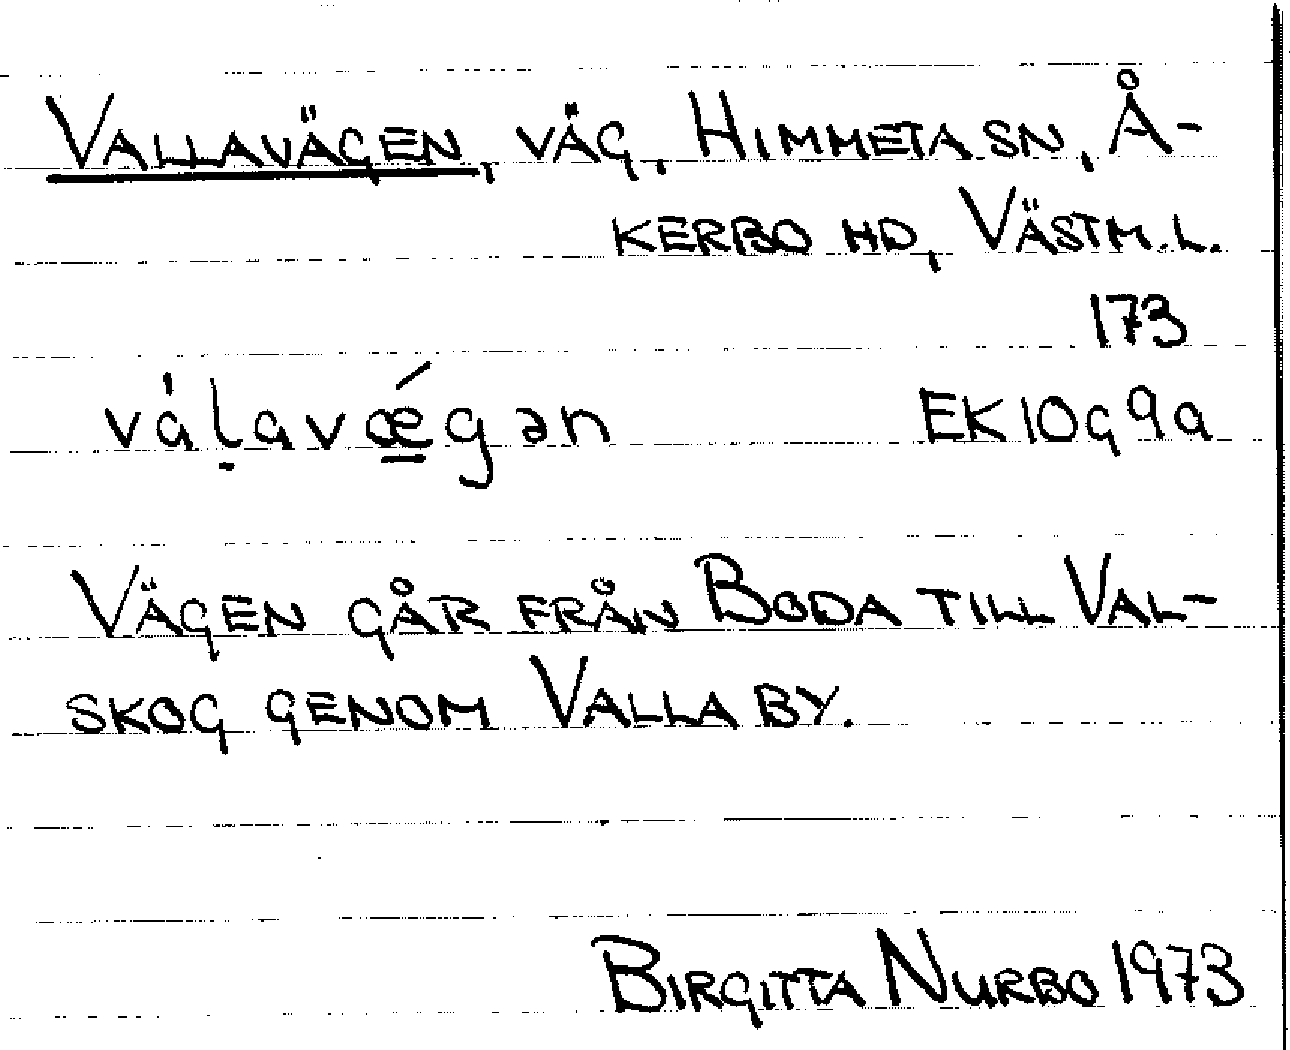 VALLAVÄGEN, VÄG, HIMMETA SN, Å-
KERBO HD, VÄSTM.L.
173
váḷavǽ̲gən EK10G9a
VÄGEN GÅR FRÅN BODA TILL VAL-
SKOG GENOM VALLA BY.
BIRGITTA NURBO 1973